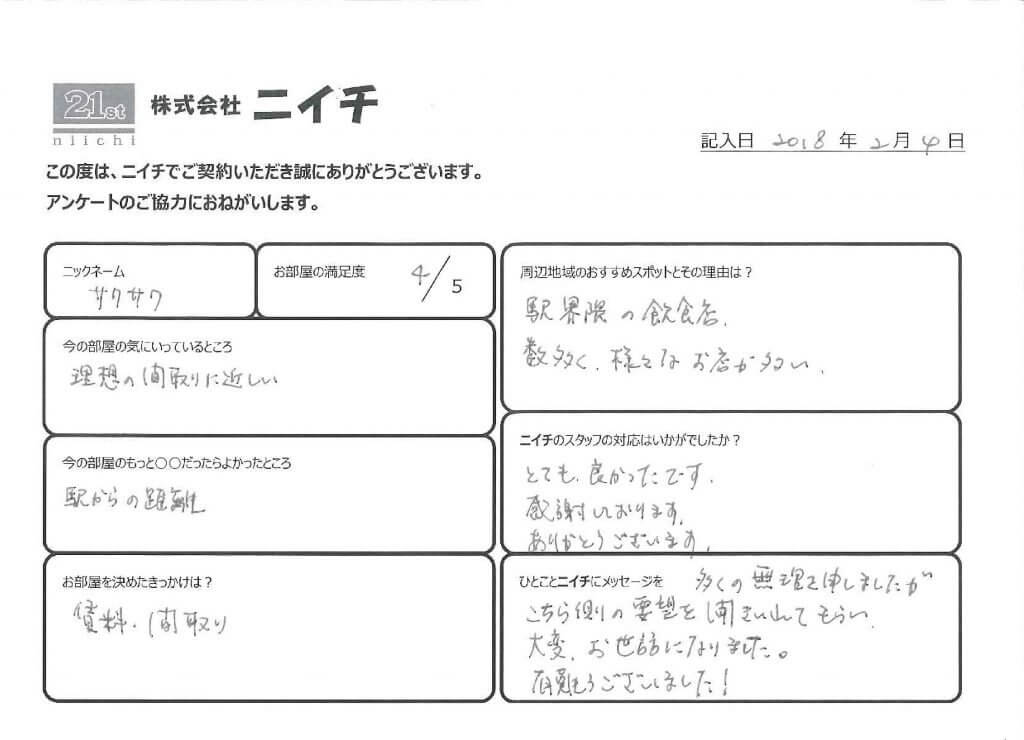 21st
niichi
株式会社 ニイチ
記入日 2018 年 2 月 4 日
この度は、ニイチでご契約いただき誠にありがとうございます。
アンケートのご協力におねがいします。
ニックネーム
サクサク
お部屋の満足度 4/5
今の部屋の気にいっているところ
理想の間取りに近しい
今の部屋のもっと○○だったらよかったところ
駅からの距離
お部屋を決めたきっかけは？
賃料・間取り
周辺地域のおすすめスポットとその理由は？
駅界隈の飲食店、
数多く、様々なお店が多い、
ニイチのスタッフの対応はいかがでしたか？
とても、良かったです。
感謝しております。
ありがとうございます。
ひとことニイチにメッセージを 多くの無理を申しましたが
こちら側の要望を聞き出してもらい、
大変、お世話になりました。
有難うございました！